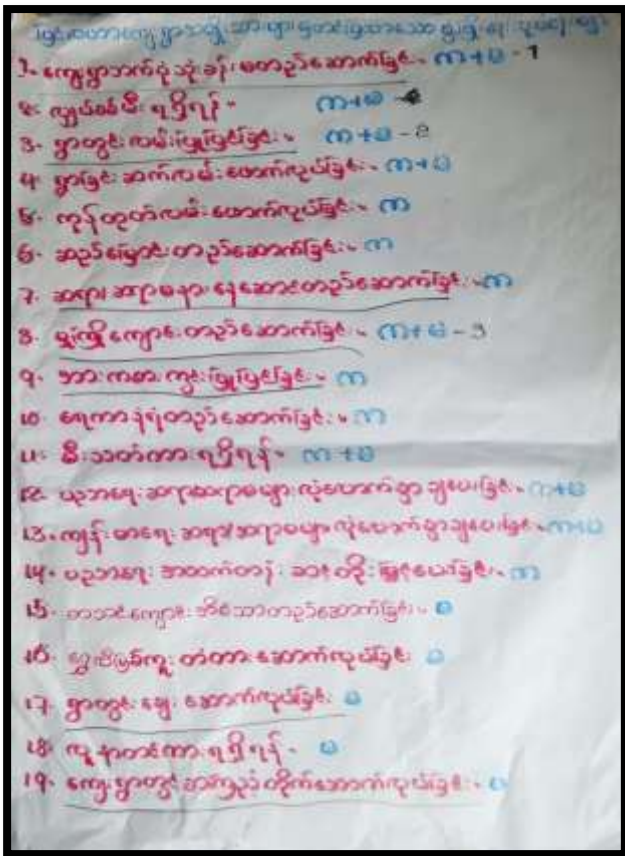 ကျေးရွာသူ ရွာသားများတင်ပြထားသော ရွာဖွံ့ဖြိုးရေး လုပ်ငန်းများ
၁- ကျေးရွာဘက်စုံသုံးခန်းမတည်ဆောက်ခြင်း။ က+မ - 1
၂- လျှပ်စစ်မီးရရှိရန်။ က+မ
၃- ရွာတွင်းလမ်းပြုပြင်ခြင်း။ က+မ - ၂
၄- ရွာခြင်းဆက်လမ်းဖောက်လုပ်ခြင်း။ က+မ
၅- ကုန်ထုတ်လမ်းဖောက်လုပ်ခြင်း။ က
၆- ဆည်မြောင်းတည်ဆောက်ခြင်း။ က
၇- ဆရာ၊ ဆရာမများနေဆောင်တည်ဆောက်ခြင်း။ က
၈- မူကြိုကျောင်းတည်ဆောက်ခြင်း။ က+မ - ၃
၉- ဘားကစားကွင်းပြုပြင်ခြင်း။ က
၁၀- ရေကာနံရံတည်ဆောက်ခြင်း။ က
၁၁- မီးသတ်ကားရရှိရန်။ က+မ
၁၂- ပညာရေးဆရာဆရာမများလုံလောက်စွာချပေးခြင်း။ က+မ
၁၃- ကျန်းမာရေးဆရာဆရာမများလုံလောက်စွာချပေးခြင်း။ က+မ
၁၄- ပညာရေးအထက်တန်းဆင့်တိုးမြှင့်ပေးခြင်း။ က
၁၅- စာသင်ကျောင်းအိမ်သာတည်ဆောက်ခြင်း။ မ
၁၆- ကူးတံတားဆောက်လုပ်ခြင်း မ
၁၇- ရွာတွင်းဈေးဆောက်လုပ်ခြင်း မ
၁၈- လူနာတင်ကားရရှိရန်။ မ
၁၉- ကျေးရွာတွင်စာကြည့်တိုက်ဆောက်လုပ်ခြင်း။ မ